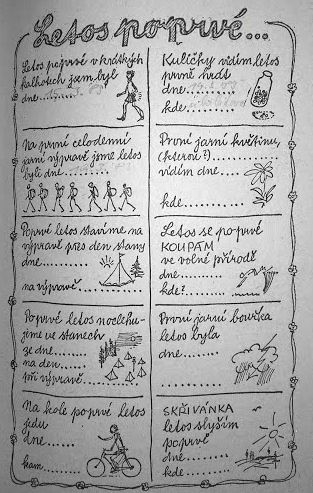 Letos poprvé...
Letos poprvé v krátkých
kalhotech jsem byl
dne
Kuličky vidím letos
prvně hrát
dne
kde
Na první celodenní
jarní výpravě jsme letos
byli dne..........
První jarní květinu,
(kterou?)..........
vidím dne....
kde..........
Poprvé letos stavíme na
výpravě přes den stany
dne..........
na výpravě....
Letos se poprvé
KOUPÁM
ve volné přírodě
dne..........
kde?..........
Poprvé letos noclehu-
jeme ve stanech
ze dne....
na den....
při výpravě....
První jarní bouřka
letos byla
dne....
..........
Na kole poprvé letos
jedu
dne.......
kam.......
SKŘIVÁNKA
letos slyším
poprvé
dne.....
kde.....